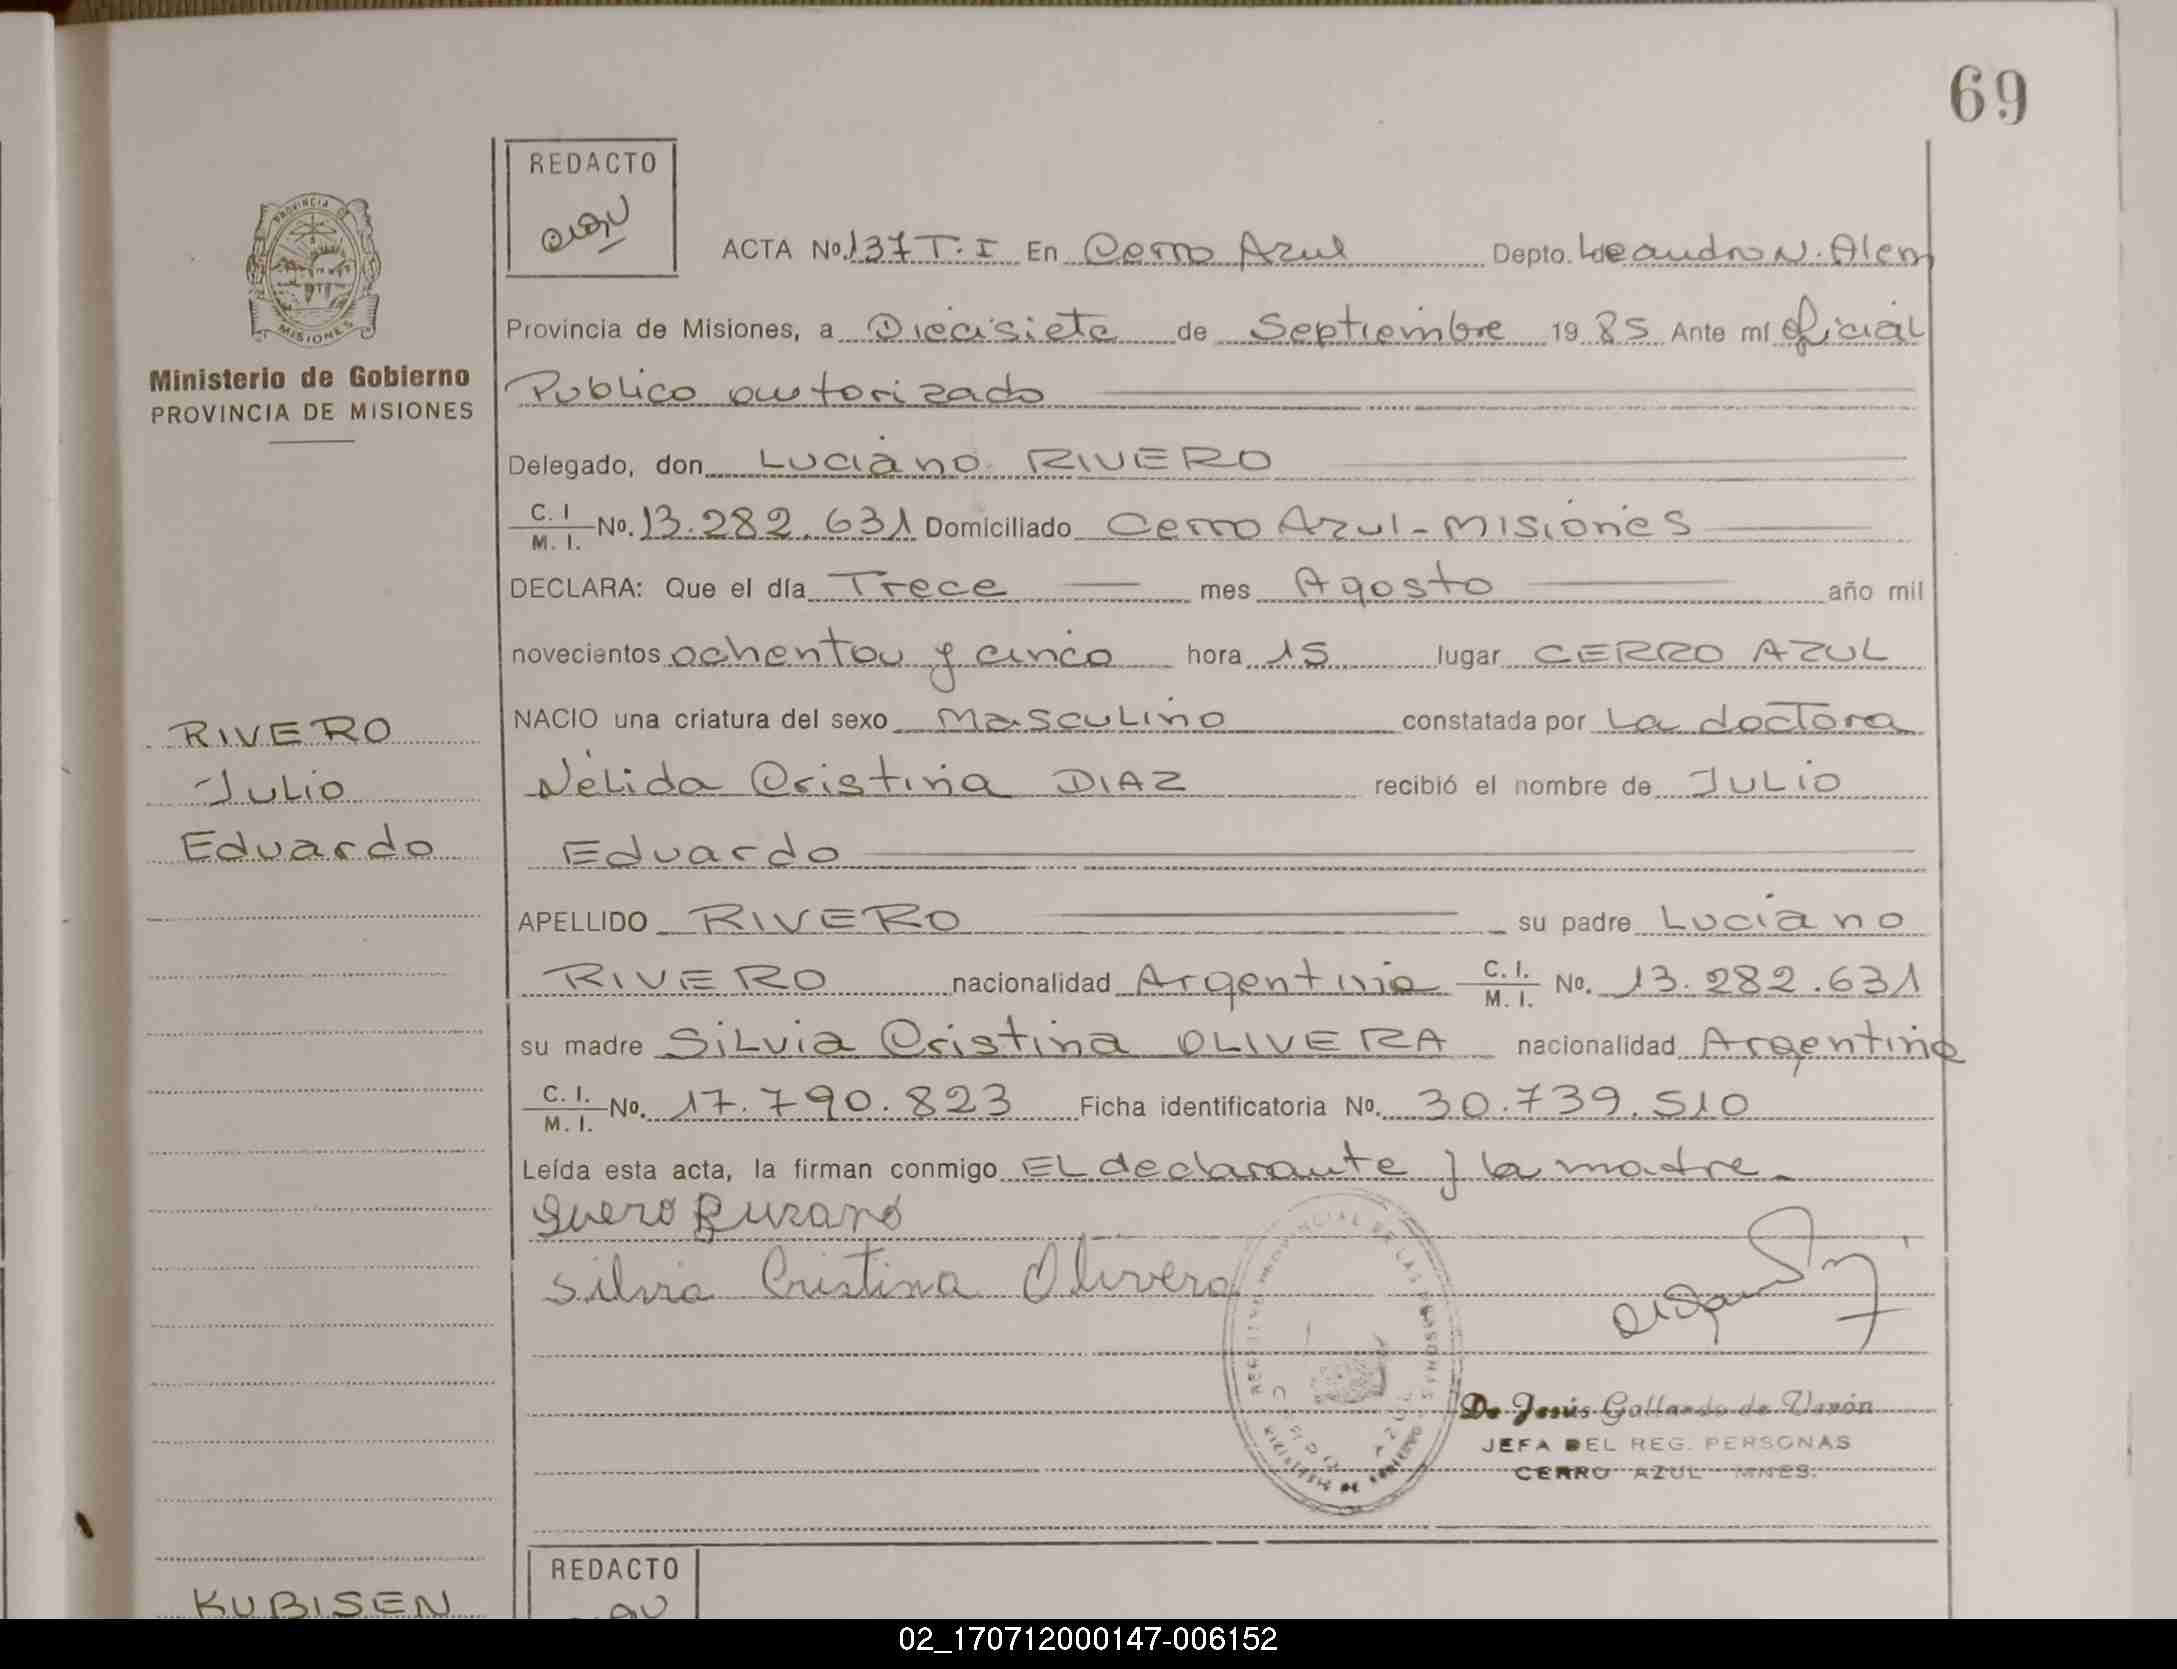 69
REDACTO
ACTA No. 137 T. I En Cerro Azul Depto. Leandro N. Alem
PROVINCIA DE
MISIONES
Provincia de Misiones, a Diecisiete de Septiembre 19 85 Ante mí oficial
Ministerio de Gobierno
PROVINCIA DE MISIONES
Publico autorizado
Delegado, don Luciano RIVERO
C. I
M. I. No. 13.282.631 Domiciliado Cerro Azul - Misiones
DECLARA: Que el día Trece mes Agosto año mil
novecientos ochenta y cinco hora 15 lugar CERRO AZUL
NACIO una criatura del sexo Masculino constatada por La doctora
RIVERO
Julio
Eduardo
Nélida Cristina DIAZ recibió el nombre de JULIO
Eduardo
APELLIDO RIVERO su padre Luciano
RIVERO nacionalidad Argentina C. I. M. I. No. 13.282.631
su madre Silvia Cristina OLIVERA nacionalidad Argentina
C. I. M. I. No. 17.790.823 Ficha identificatoria No. 30.739.510
Leída esta acta, la firman conmigo EL declarante y la madre
Silvia Cristina Olivera
De Jesús Gallardo de Varón
JEFA DEL REG. PERSONAS
CERRO AZUL MNES.
REDACTO
KUBISEN
02_170712000147-006152